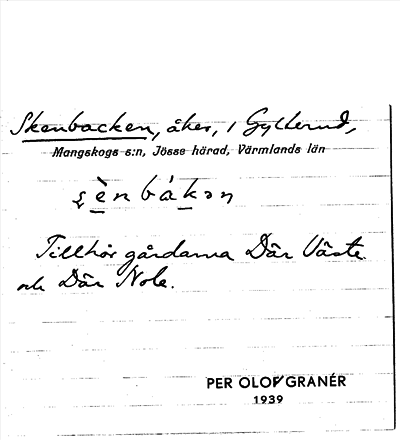 Skenbacken, åker, i Gylterud,
Mangskogs s:n, Jösse härad, Värmlands län
Tillhör gårdarna Där Väste
och Där Nole.
PER OLOV GRANÉR
1939